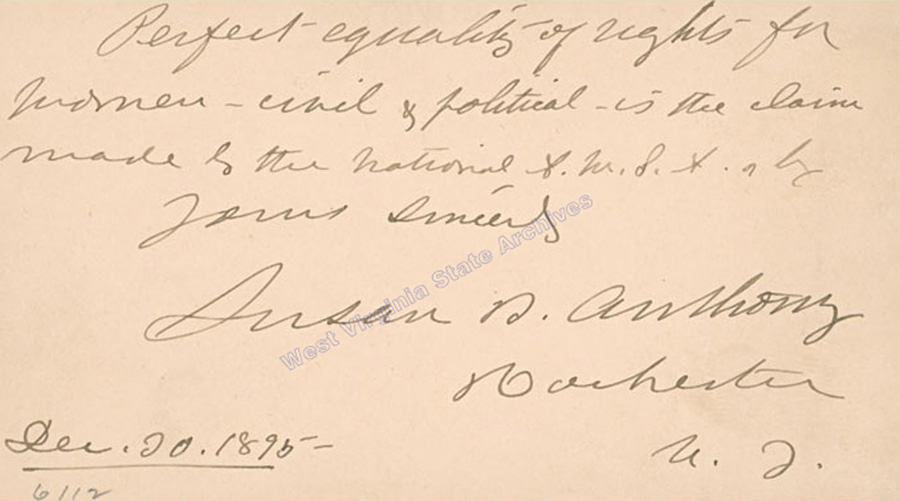 Perfect equality of rights for
women - civil & political - is the claim
made by the National A. W. S. A. & by
Yours Sincerely
West Virginia State Archives
Susan B. Anthony
Rochester
N. Y.
Dec. 20. 1895 -
6112